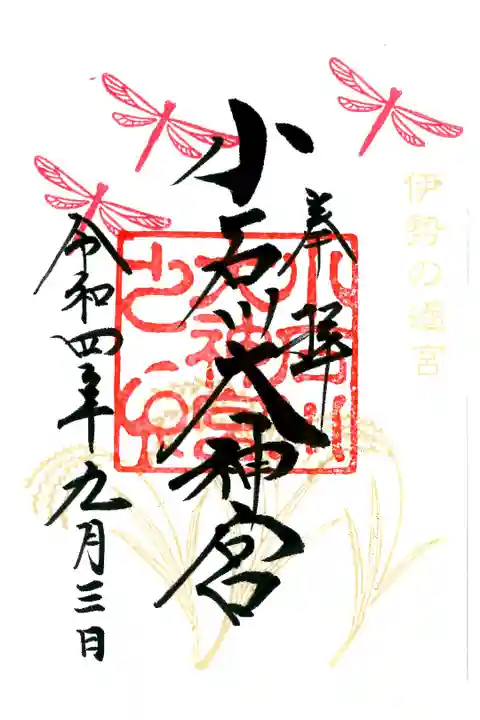 伊勢の遥宮
奉拝
小石川大神宮
小石川
大神宮
之印
令和四年九月三日